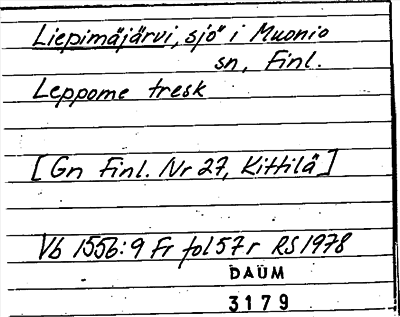 Liepimäjärvi, sjö i Muonio
sn, Finl.
Leppome tresk
[Gn Finl. Nr 27, Kittilä]
Vb 1556:9 Fr fol 57r RS 1978
DAUM
3179